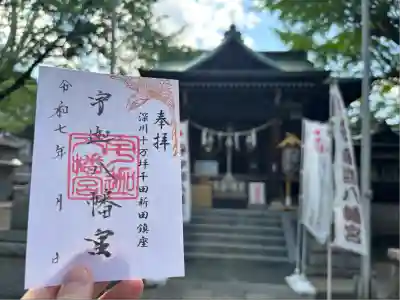 奉拝
深川十万坪千田新田鎮座
宇迦八幡宮
令和七年 月 日
八幡宮